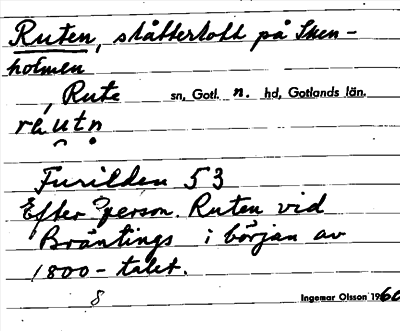 Ruten, slåtterlott på Sken-
holmen
, Rute sn, Gotl. n. hd, Gotlands län.
rautn
Furilden 53
Efter ?person. Ruten vid
Bräntings i början av
1800-talet.
8 Ingemar Olsson 1960